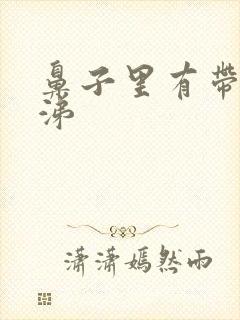 鼻子里有带
涕
潇潇嫣然雨